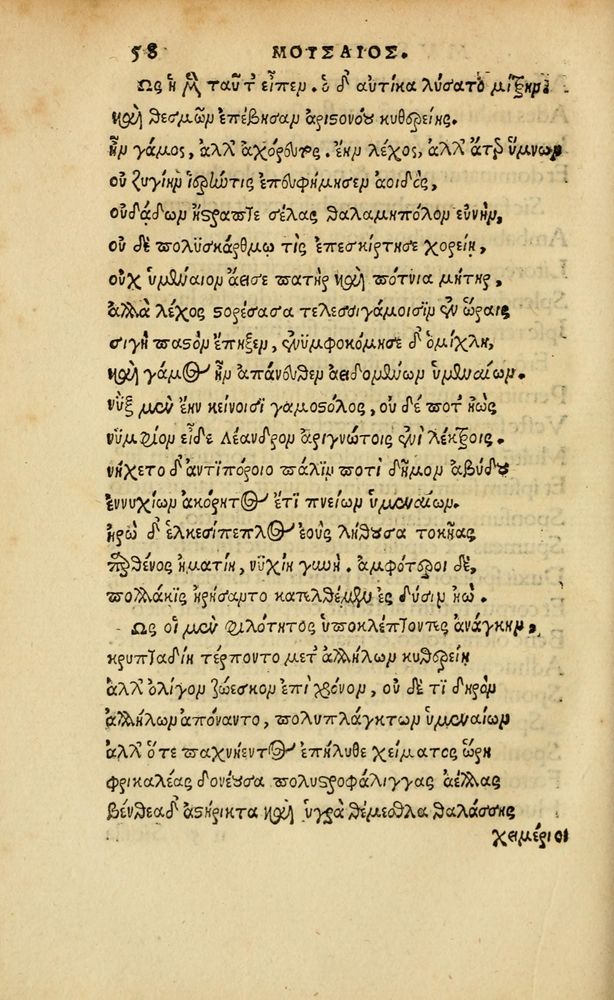 58 ΜΟΥΣΑΙΟΣ.
Ως ἡ μὲν ταῦτ εἶπεν. ὁ δ' αὐτίκα λύσατο μίτρην
καὶ θεσμῶν ἐπέβησαν ἀριστονόου κυθερείης.
ἦν γάμος, ἀλλ' ἀχόρευτος. ἔην λέχος, ἀλλ' ἄτερ ὕμνων
οὐ ζυγίην ἱερὴν τις ἐπευφήμησεν ἀοιδὸς,
οὐ δάδων ἤστραπτε σέλας θαλαμηπόλον εὐνὴν,
οὐ δὲ πολυσκάρθμῳ τὶς ἐπεσκίρτησε χορείῃ,
οὐχ ὑμέναιον ἄεισε πατὴρ καὶ πότνια μήτηρ,
ἀλλὰ λέχος στορέσασα τελεσσιγάμοισιν ἐν ὥραις
σιγὴ παστὸν ἔπηξεν, ἐνυμφοκόμησε δ' ὁμίχλη,
καὶ γάμος ἦν ἀπάνευθεν ἀειδομένων ὑμεναίων.
νὺξ μὲν ἔην κείνοισι γαμοστόλος, οὐ δέ ποτ' ἠὼς
νυμφίον εἶδε Λέανδρον ἀριγνώτοις ἐνὶ λέκτροις.
νήχετο δ' ἀντιπόροιο πάλιν ποτὶ δῆμον ἀβύδου
ἐννυχίων ἀκόρητος ἔτι πνείων ὑμεναίων.
ἡρὼ δ' ἑλκεσίπεπλος ἑοὺς λήθουσα τοκῆας
παρθένος ἠματίη, νυχίη γυνή. ἀμφότεροι δὲ,
πολλάκις ἠρήσαντο κατελθέμεν ἐς δύσιν ἠώ.
Ως οἱ μὲν φιλότητος ὑποκλέπτοντες ἀνάγκην,
κρυπταδίῃ τέρποντο μετ' ἀλλήλων κυθερείῃ
ἀλλ' ὀλίγον ζώεσκον ἐπὶ χρόνον, οὐ δέ τι δηρὸν
ἀλλήλων ἀπόναντο, πολυπλάγκτων ὑμεναίων
ἀλλ' ὅτε παχνήεντος ἐπήλυθε χείματος ὥρη
φρικαλέας δονέουσα πολυστροφάλιγγας ἀέλλας
βένθεα δ' ἀστήρικτα καὶ ὑγρὰ θέμεθλα θαλάσσης
χειμέριοι